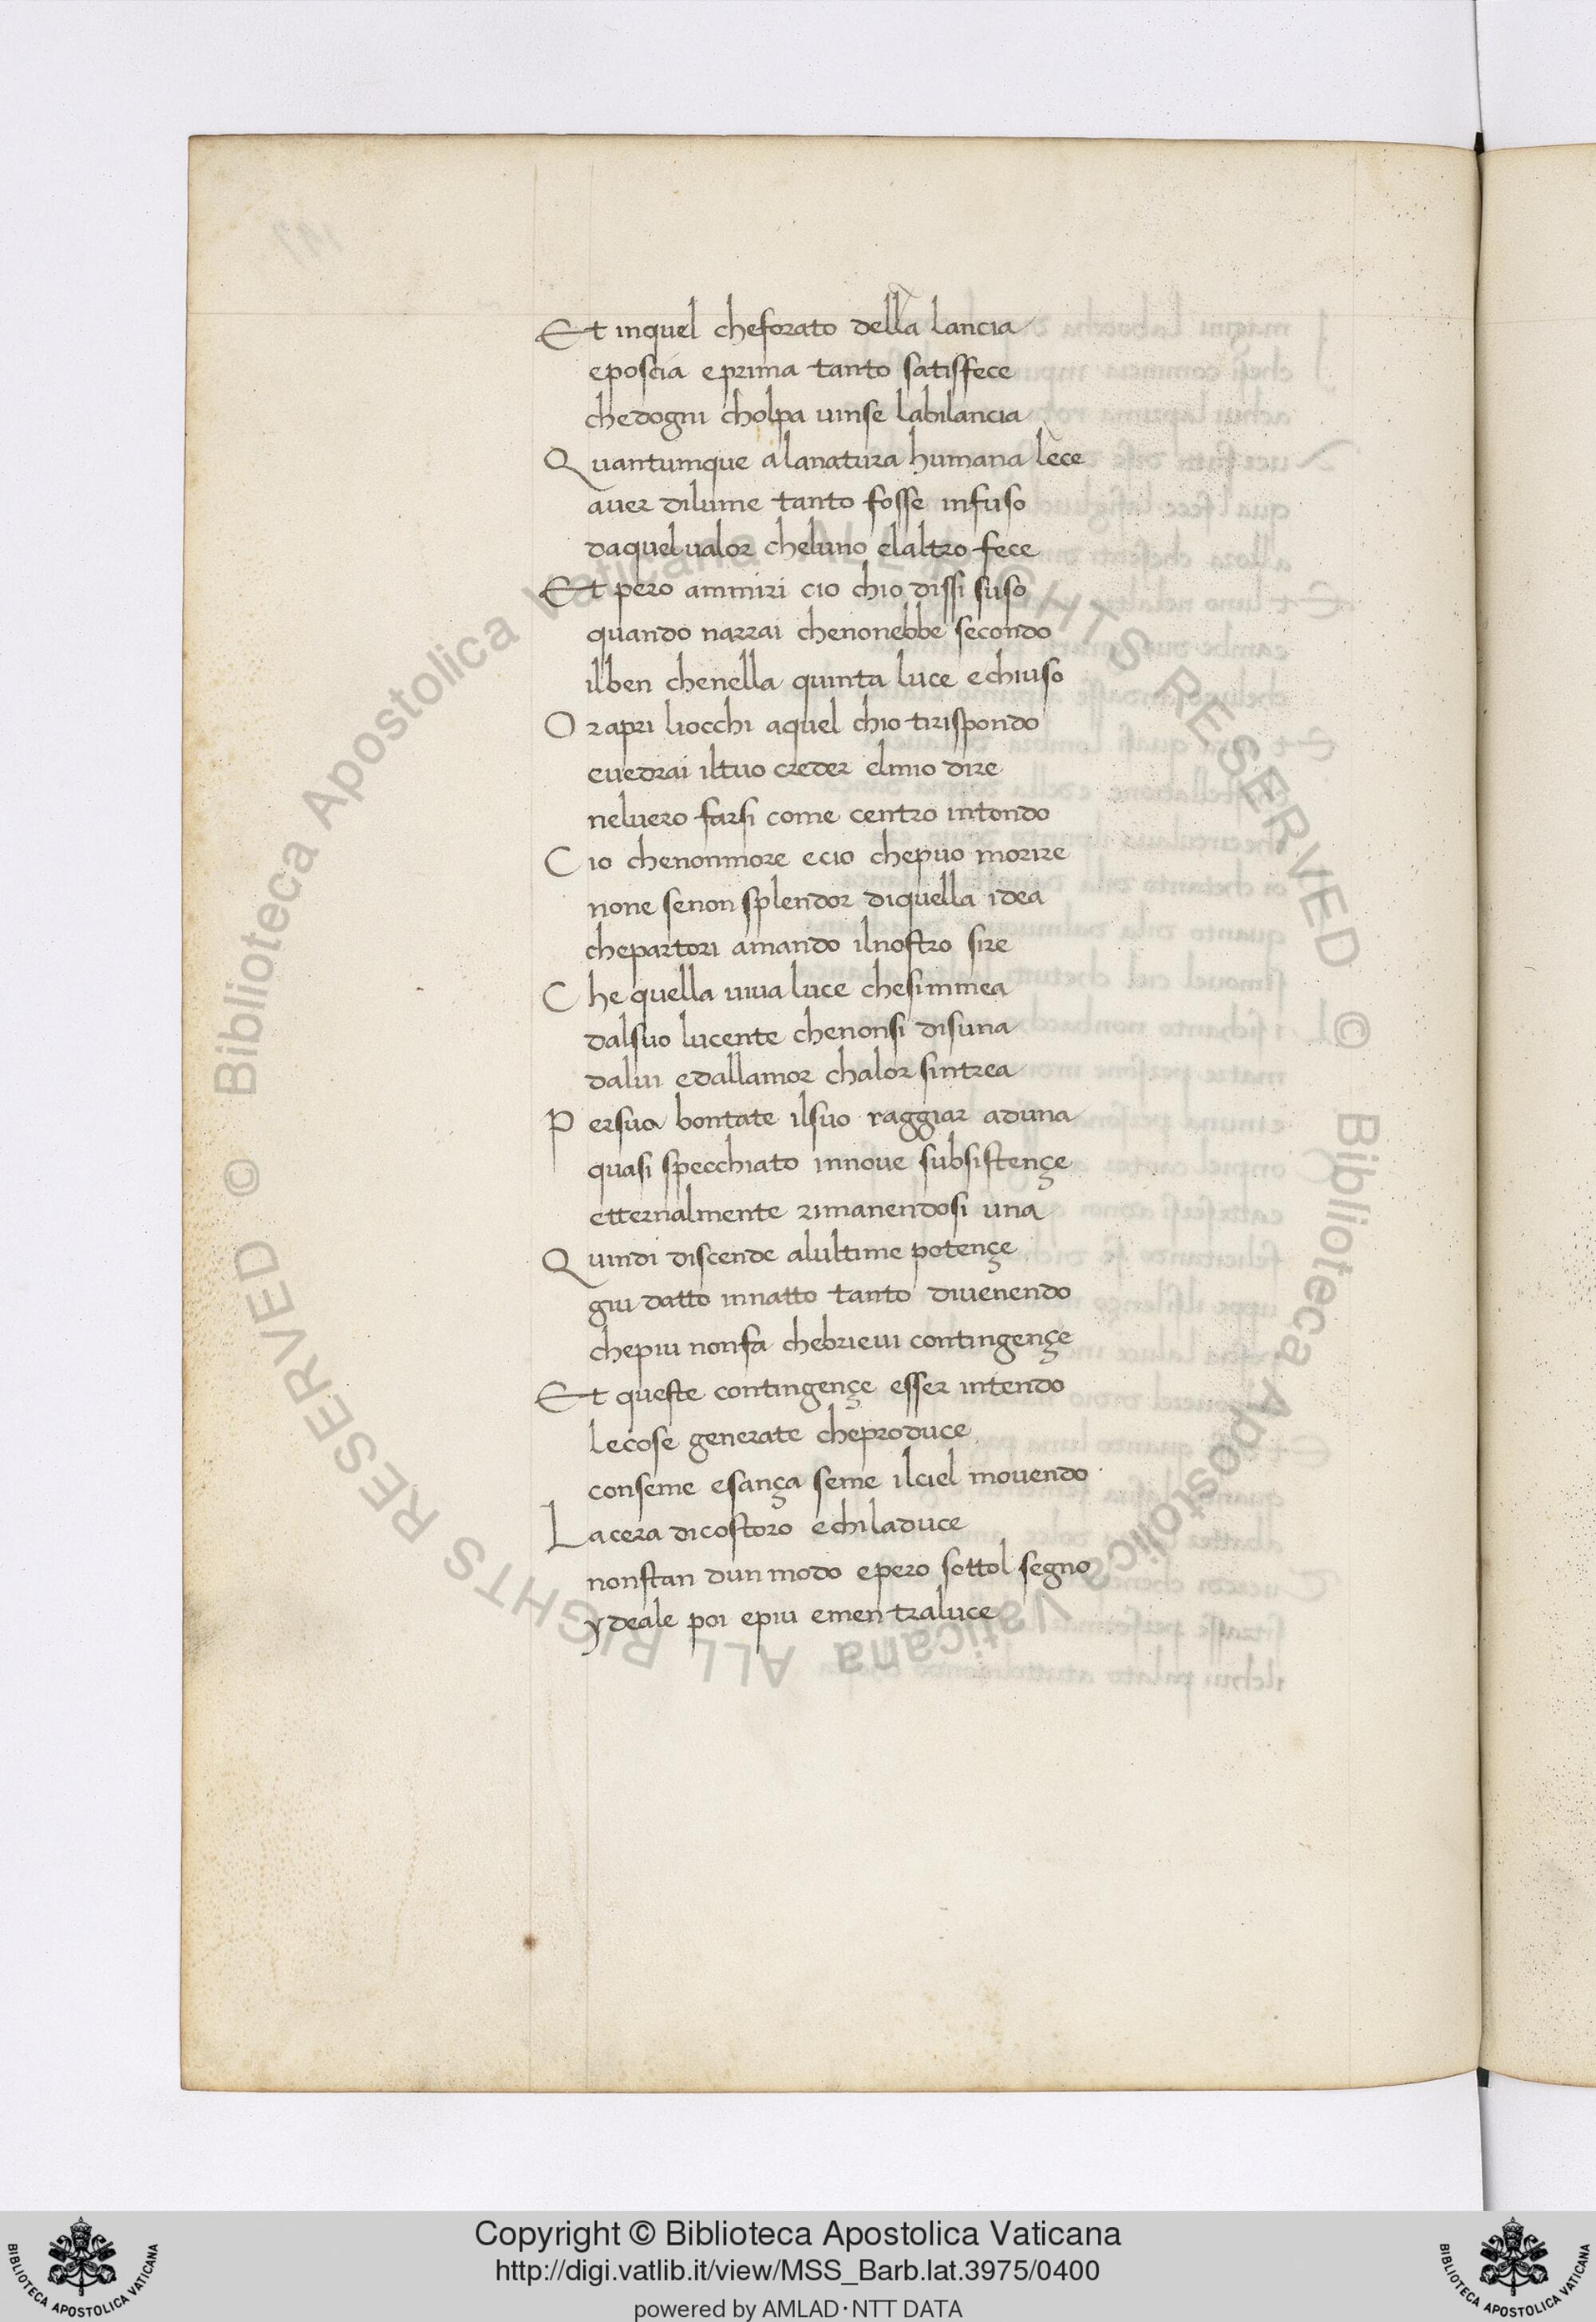 Et inquel cheforato della lancia
eposcia eprima tanto satisfece
chedogni cholpa uinse labilancia
Quantumque alanatura humana lece
auer dilume tanto fosse infuso
daquel ualor cheluno elaltro fece
Et pero ammiri cio chio dissi suso
quando narrai chenonebbe secondo
ilben chenella quinta luce echiuso
Orapri liocchi aquel chio tirispondo
euedrai iltuo creder elmio dire
neluero farsi come centro intondo
Cio chenonmore ecio chepuo morire
none senon splendor diquella idea
chepartori amando ilnostro sire
Che quella uiua luce chesimmea
dalsuo lucente chenonsi disuna
dalui edallamor chalor sintrea
Persua bontate ilsuo raggiar aduna
quasi specchiato innoue subsistençe
etternalmente rimanendosi una
Quindi discende alultime potençe
giu datto innatto tanto diuenendo
chepiu nonfa chebrieui contingençe
Et queste contingençe esser intendo
lecose generate cheproduce
conseme esança seme ilciel mouendo
Lacera dicostoro echiladuce
nonstan dun modo epero sottol segno
ydeale poi epiu emen traluce
Copyright © Biblioteca Apostolica Vaticana
http://digi.vatlib.it/view/MSS_Barb.lat.3975/0400
powered by AMLAD·NTT DATA
BIBLIOTECA APOSTOLICA VATICANA
BIBLIOTECA APOSTOLICA VATICANA
© Biblioteca Apostolica Vaticana ALL RIGHTS RESERVED
© Biblioteca Apostolica Vaticana ALL RIGHTS RESERVED